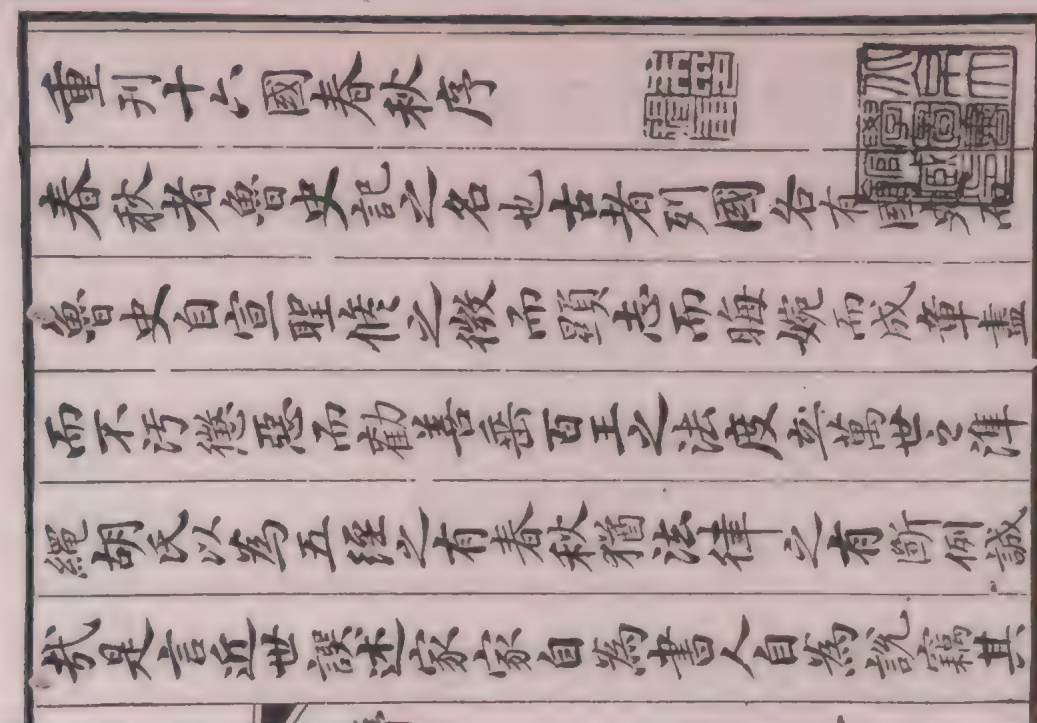 重刊十六國春秋序
春秋者魯史記之名也古者列國各有國史而
魯史自宣聖脩之微而顯志而晦婉而成章盡
而不汚懲惡而勸善垂百王之法度立萬世之準
繩胡氏以為五經之有春秋猶法律之有斷例誠
哉是言近世譔述家家自為書人自為說竊其